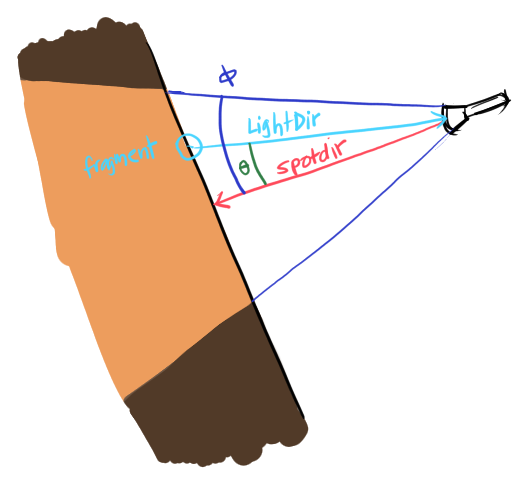 ϕ
LightDir
fragment
θ
spotdir